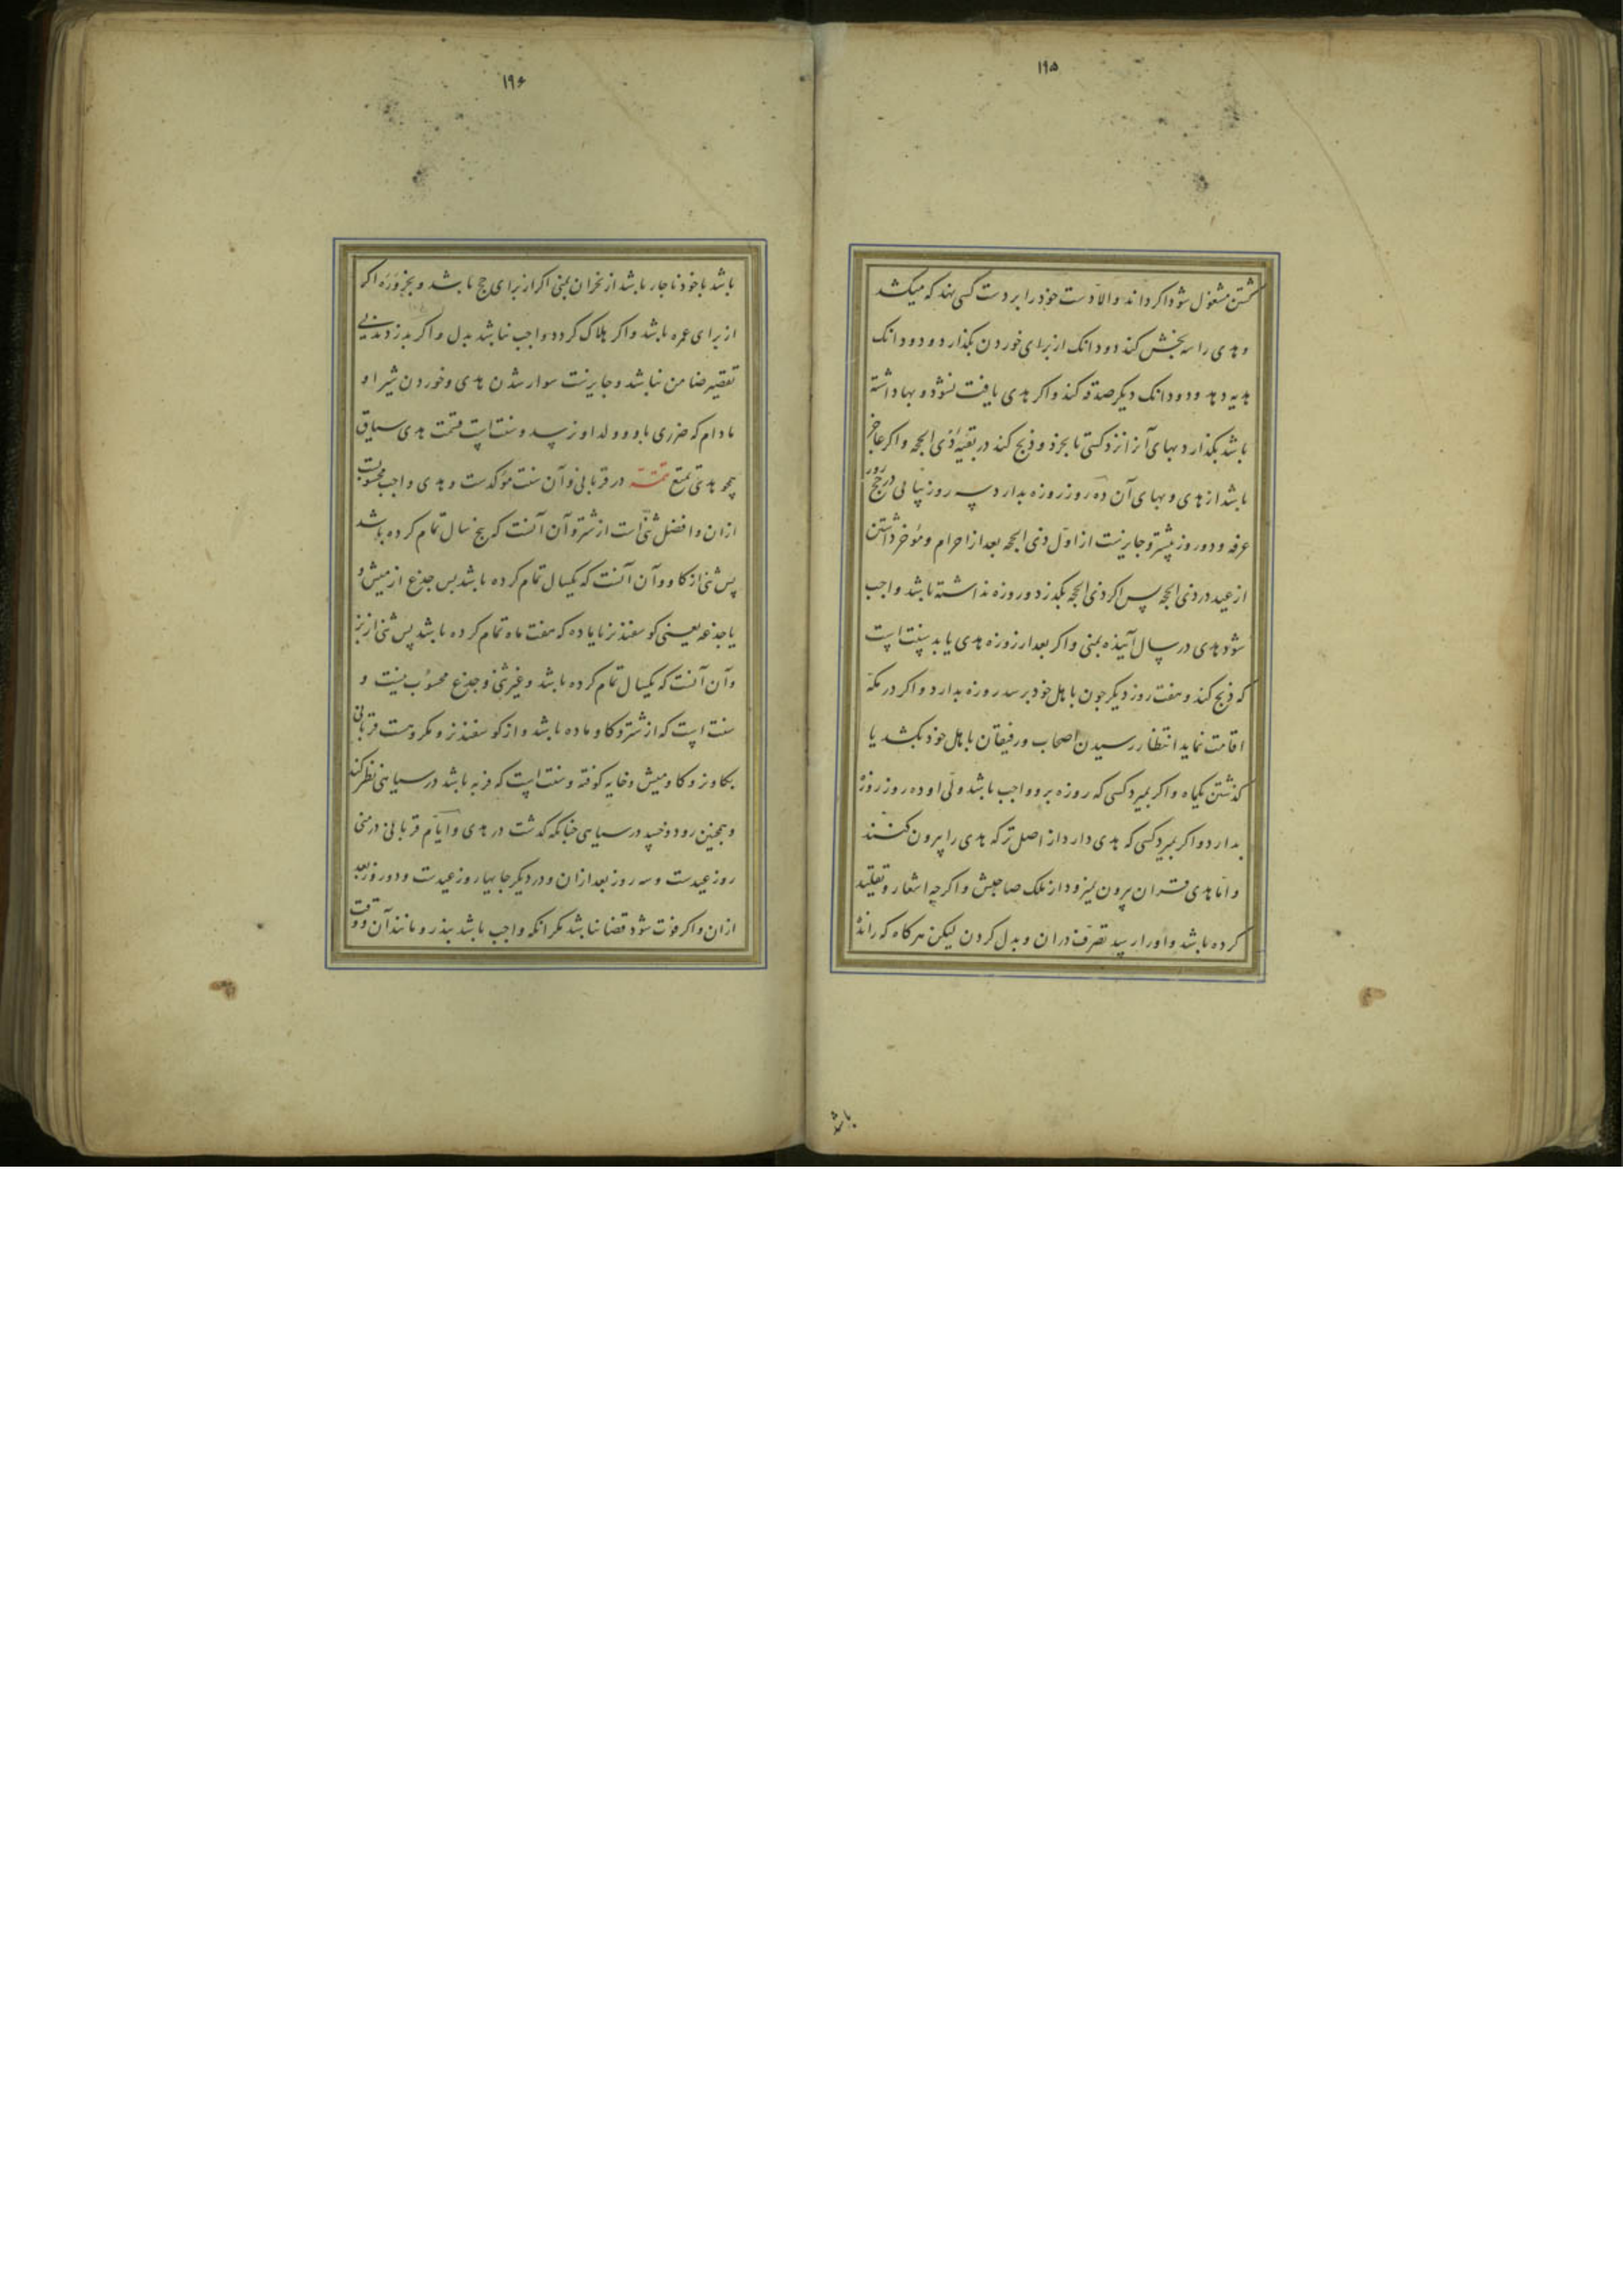 ۱۹۵
کشتن مشغول شود اکر داند والا دست خود را بر دست کسی نهد که میکشد
و هدی را سه بخش کند دو دانک از برای خوردن بکذارد و دو دانک
هدیه دهد و دو دانک دیکر صدقه کند و اکر هدی یافت نشود و بها داشته
باشد بکذارد بهای آنرا نزد کسی تا بخرد و ذبح کند در بقیه ذی الحجه و اکر عاجز
باشد از هدی و بهای آن ده روز روزه بدارد سه روز پیاپی در حج روز
عرفه و دو روز پیشتر و جایزست از اول ذی الحجه بعد از احرام و مؤخر داشتن
از عید در ذی الحجه پس اکر ذی الحجه بکذرد و روزه نداشته باشد واجب
شود هدی در سال آینده بمنی و اکر بعد از روزه هدی یابد سنت است
که ذبح کند و هفت روز دیکر چون باهل خود برسد روزه بدارد و اکر در مکه
اقامت نماید انتظار رسیدن اصحاب و رفیقان باهل خود بکشد یا
کذشتن یکماه و اکر بمیرد کسی که روزه برو واجب باشد ولی او ده روز روزه
بدارد و اکر بمیرد کسی که هدی دارد از اصل ترکه هدی را بیرون کنند
و اما هدی قران بیرون نمیرود از ملک صاحبش و اکر چه اشعار و تقلید
کرده باشد و او را رسد تصرف دران و بدل کردن لیکن هرکاه که رانده
باشد
۱۹۶
باشد با خود ناچار باشد از نحر آن بمنی اکر از برای حج باشد و بحزوره اکر
از برای عمره باشد و اکر هلاک کردد واجب نباشد بدل و اکر بدزدند بی
تقصیر ضامن نباشد و جایزست سوار شدن هدی و خوردن شیر او
مادام که ضرری باو و ولد او نرسد و سنت است قسمت هدی سیاق
همچو هدی تمتع تتمة در قربانی و آن سنت مؤکدست و هدی واجب محسوبست
ازان و افضل ثنی است از شتر و آن آنست که پنج سال تمام کرده باشد
پس ثنی از کاو و آن آنست که یکسال تمام کرده باشد پس جذع از میش و
یا جذعه یعنی کوسفند نر یا ماده که هفت ماه تمام کرده باشد پس ثنی از بز
و آن آنست که یکسال تمام کرده باشد و غیر ثنی و جذع محسوب نیست و
سنت است که از شتر و کاو ماده باشد و از کوسفند نر و مکروهست قربانی
بکاو نر و کاومیش و خایه کوفته و سنت است که فربه باشد در سیاهی نظر کند
و همچنین رود و خسپد در سیاهی چنانکه کذشت در هدی و ایام قربانی در منی
روز عیدست و سه روز بعد ازان و در دیکر جایها روز عیدست و دو روز بعد
ازان و اکر فوت شود قضا نباشد مکر آنکه واجب باشد بنذر و مانند آن و وقت